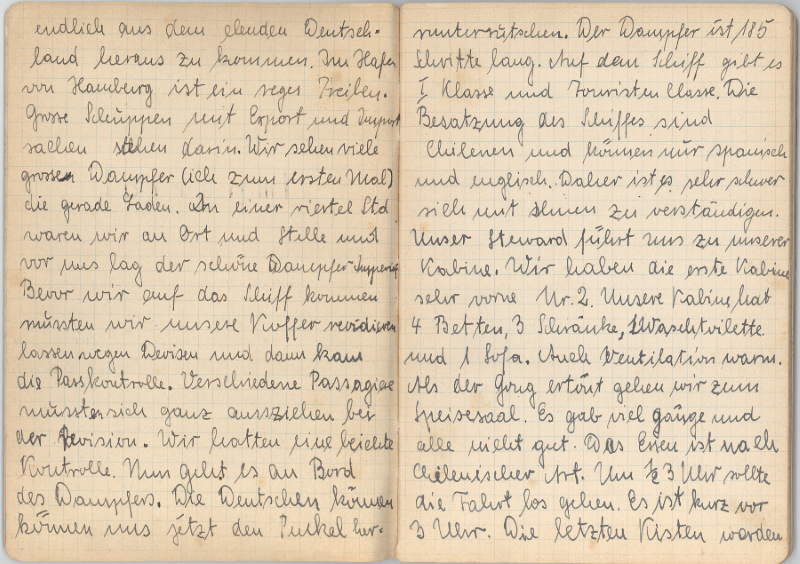 endlich aus dem elenden Deutsch-
land heraus zu kommen. Im Hafen
von Hamburg ist ein reges Treiben.
Grosse Schuppen mit Export und Import
sachen stehen darin. Wir sehen viele
grossen Dampfer (ich zum ersten Mal)
die gerade laden. In einer viertel Std
waren wir an Ort und Stelle und
vor uns lag der schöne Dampfer-Imperial
Bevor wir auf das Schiff kommen
mussten wir unsere Koffer revidieren
lassen wegen Devisen und dann kam
die Passkontrolle. Verschiedene Passagiere
mussten sich ganz ausziehen bei
der Revision. Wir hatten eine leichte
Kontrolle. Nun geht es an Bord
des Dampfers. Die Deutschen können
können uns jetzt den Puckel her-
runterrutschen. Der Dampfer ist 185
Schritte lang. Auf dem Schiff gibt es
I Klasse und Touristen Classe. Die
Besatzung des Schiffes sind
Chilenen und können nur spanisch
und englisch. Daher ist es sehr schwer
sich mit Ihnen zu verständigen.
Unser Steward führt uns zu unserer
Kabine. Wir haben die erste Kabine
sehr vorne Nr. 2. Unsere Kabine, hat
4 Betten, 3 Schränke, 1 Waschtoilette
und 1 Sofa. Auch Ventilation warm.
Als der Gong ertönt gehen wir zum
Speisesaal. Es gab viel gänge und
alle nicht gut. Das Essen ist nach
Chilenischer Art. Um ½ 3 Uhr sollte
die Fahrt los gehen. Es ist kurz vor
3 Uhr. Die letzten Kisten werden